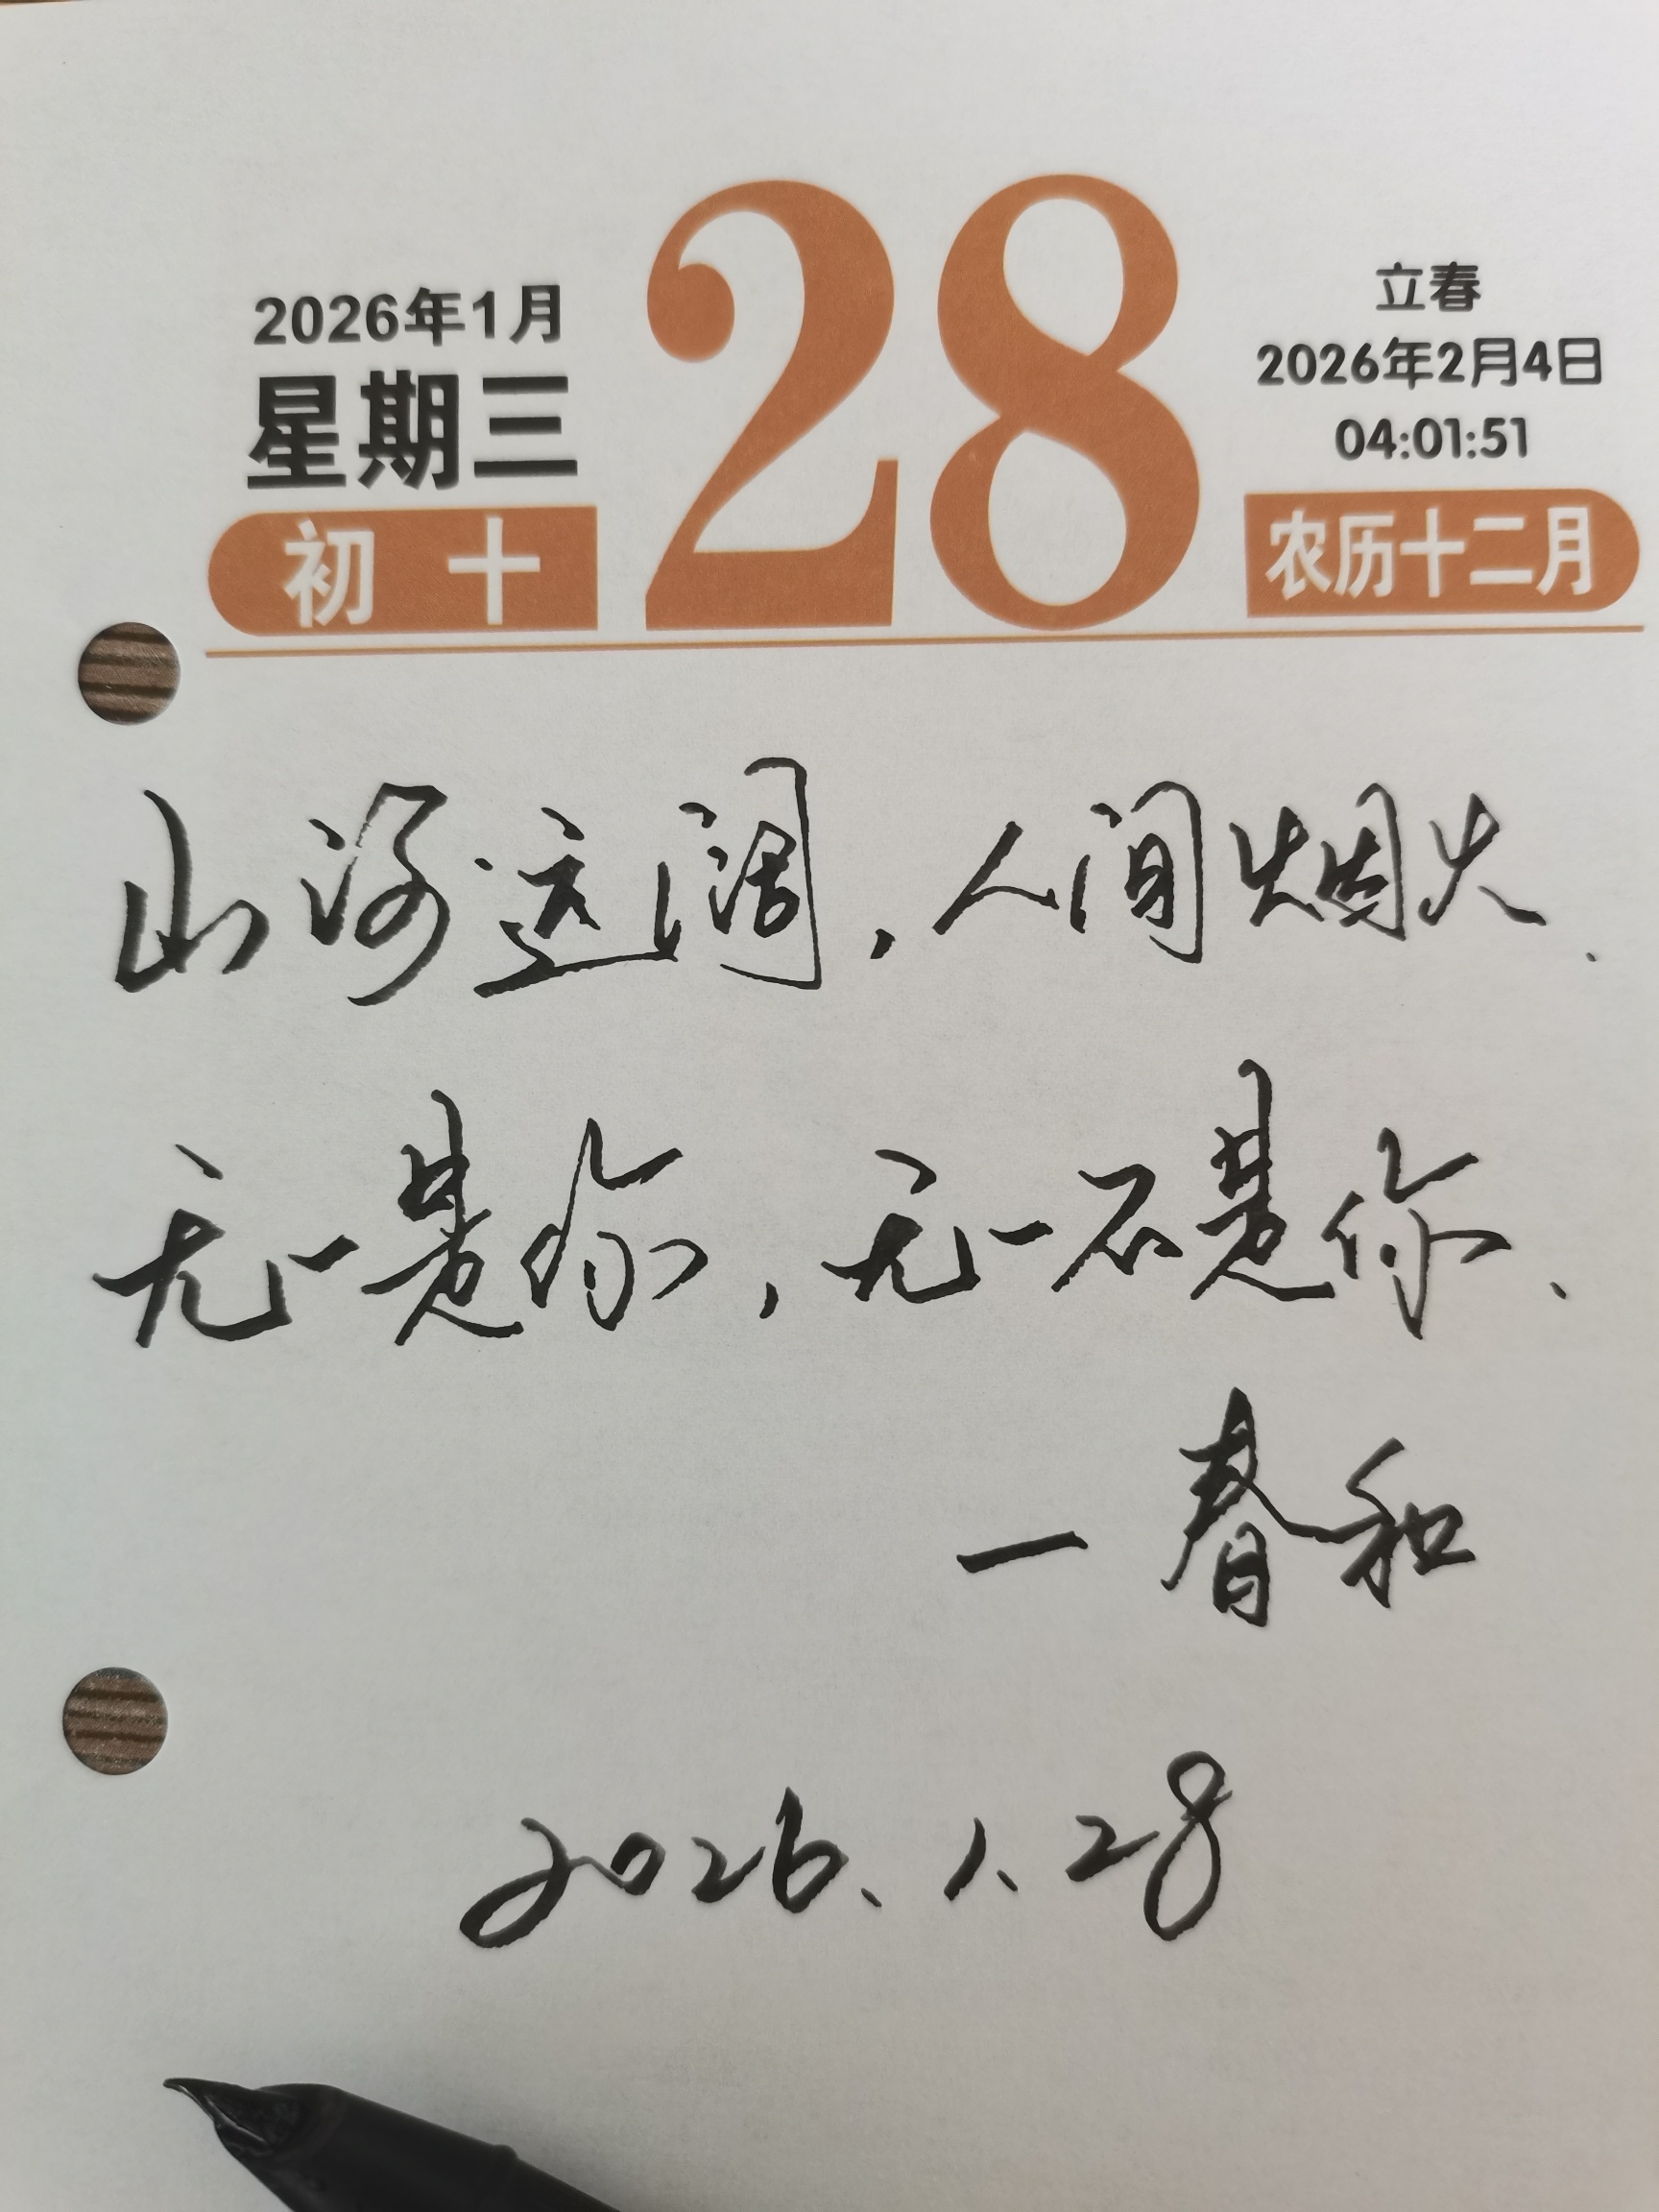 2026年1月
星期三
初十
28
立春
2026年2月4日
04:01:51
农历十二月
山河远阔，人间烟火.
无一是你，无一不是你.
—春和
2026.1.28